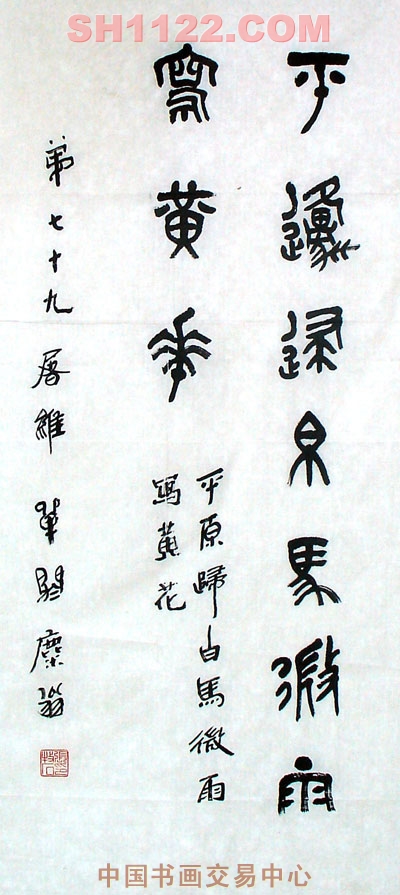 SH1122.COM
平邍歸白馬微雨
寫黃華
平原歸白馬微雨
寫黃花
弟七十九屠維單閼麋翁
中国书画交易中心